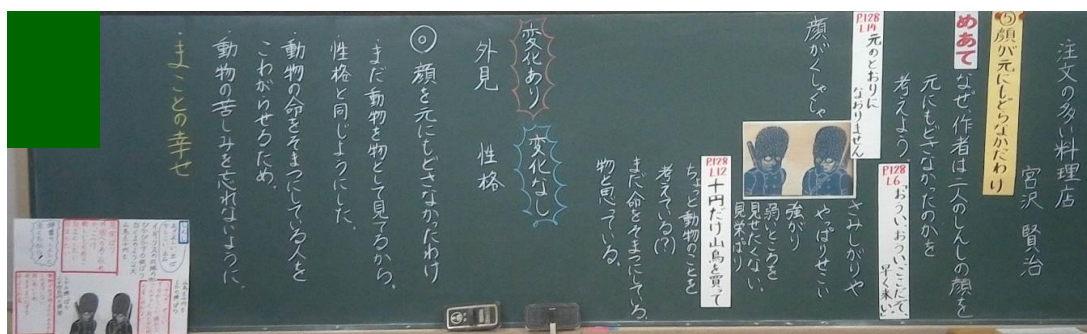 注文の多い料理店
宮沢 賢治
⑤顔が元にもどらなかったわけ
めあて
なぜ、作者は二人のしんしの顔を
元にもどさなかったのかを
考えよう
P.128
L6
「おうい、おうい、ここだぞ、
早く来い。」
P.128
L14
元のとおりに
なおりません
顔がくしゃくしゃ
さみしがりや
やっぱりせこい
強がり
弱いところを
見せたくない。
見栄っぱり
P.128
L12
十円だけ山鳥を買って
ちょっと動物のことを
考えている(?)
まだ命をそまつにしている。
物と思っている。
変化あり
外見
変化なし
性格
◎顔を元にもどさなかったわけ
・まだ動物を物として見てるから。
・性格と同じようにした。
・動物の命をそまつにしている人を
こわがらせるため。
・動物の苦しみを忘れないように。
・まことの幸せ